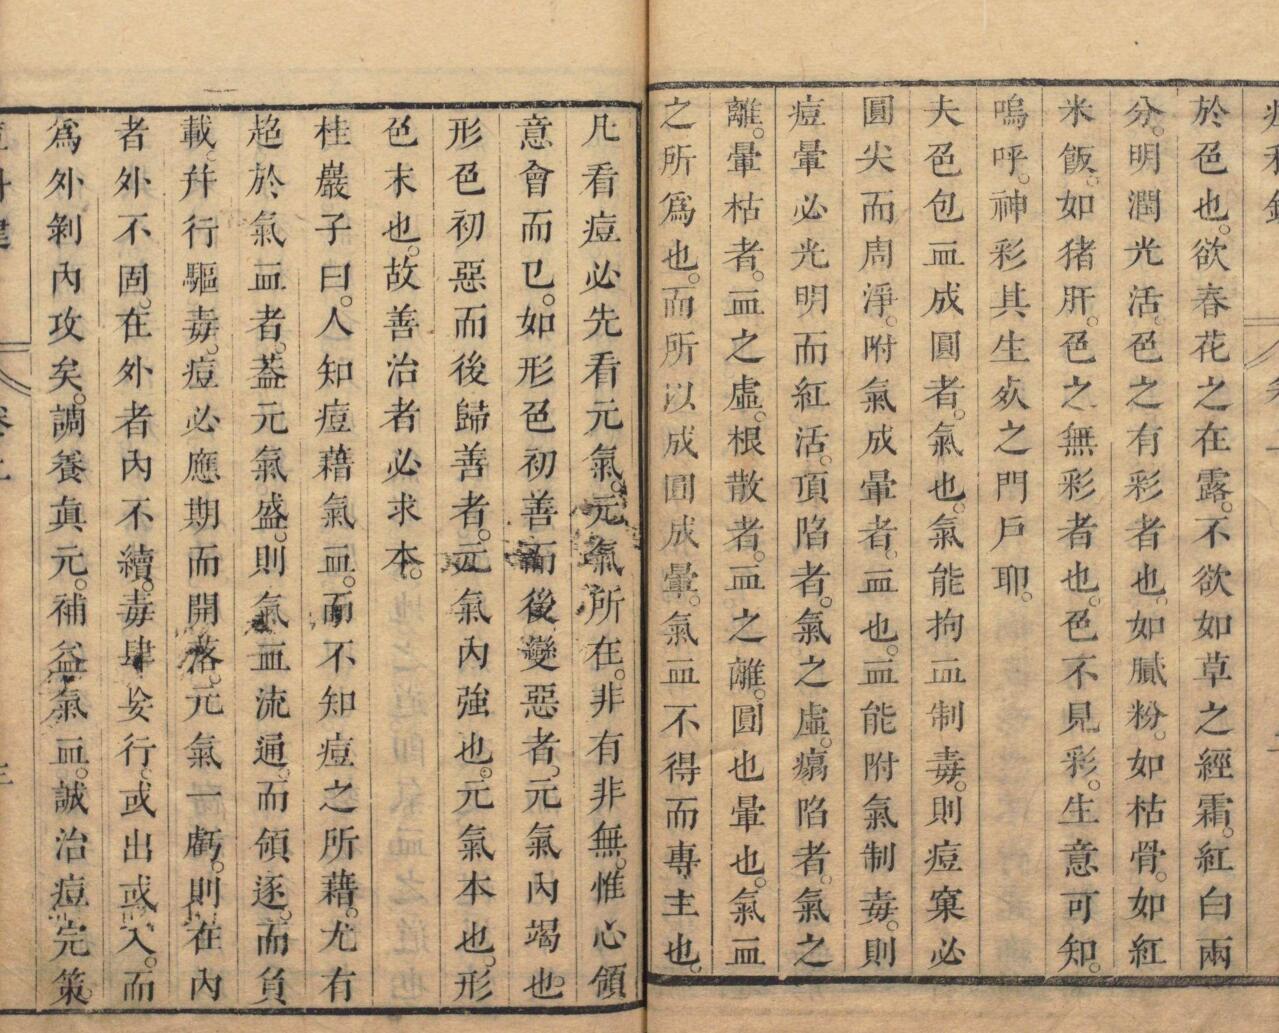 於色也。欲春花之在露。不欲如草之經霜。紅白兩
分。明潤光活。色之有彩者也。如膩粉。如枯骨。如紅
米飯。如猪肝。色之無彩者也。色不見彩。生意可知。
嗚呼。神彩其生死之門戶耶。
夫色包血成圓者。氣也。氣能拘血制毒。則痘窠必
圓尖而周淨。附氣成暈者。血也。血能附氣制毒。則
痘暈必光明而紅活。頂陷者。氣之虛。癟陷者。氣之
離。暈枯者。血之虛。根散者。血之離。圓也暈也。氣血
之所爲也。而所以成圓成暈。氣血不得而專主也。
凡看痘必先看元氣。元氣所在。非有非無。惟心領
意會而已。如形色初善而後變惡者。元氣內竭也。
形色初惡而後歸善者。元氣內強也。元氣本也。形
色末也。故善治者必求本。
桂巖子曰。人知痘藉氣血。而不知痘之所藉。尤有
超於氣血者。蓋元氣盛。則氣血流通。而領逐。而負
載。幷行驅毒。痘必應期而開落。元氣一虧。則在內
者外不固。在外者內不續。毒肆妄行。或出或入。而
爲外剝內攻矣。調養眞元。補益氣血。誠治痘完策。